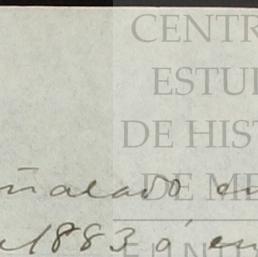 CENTR
ESTU
DE HIST
ñalado
DE ME
1883 ó en